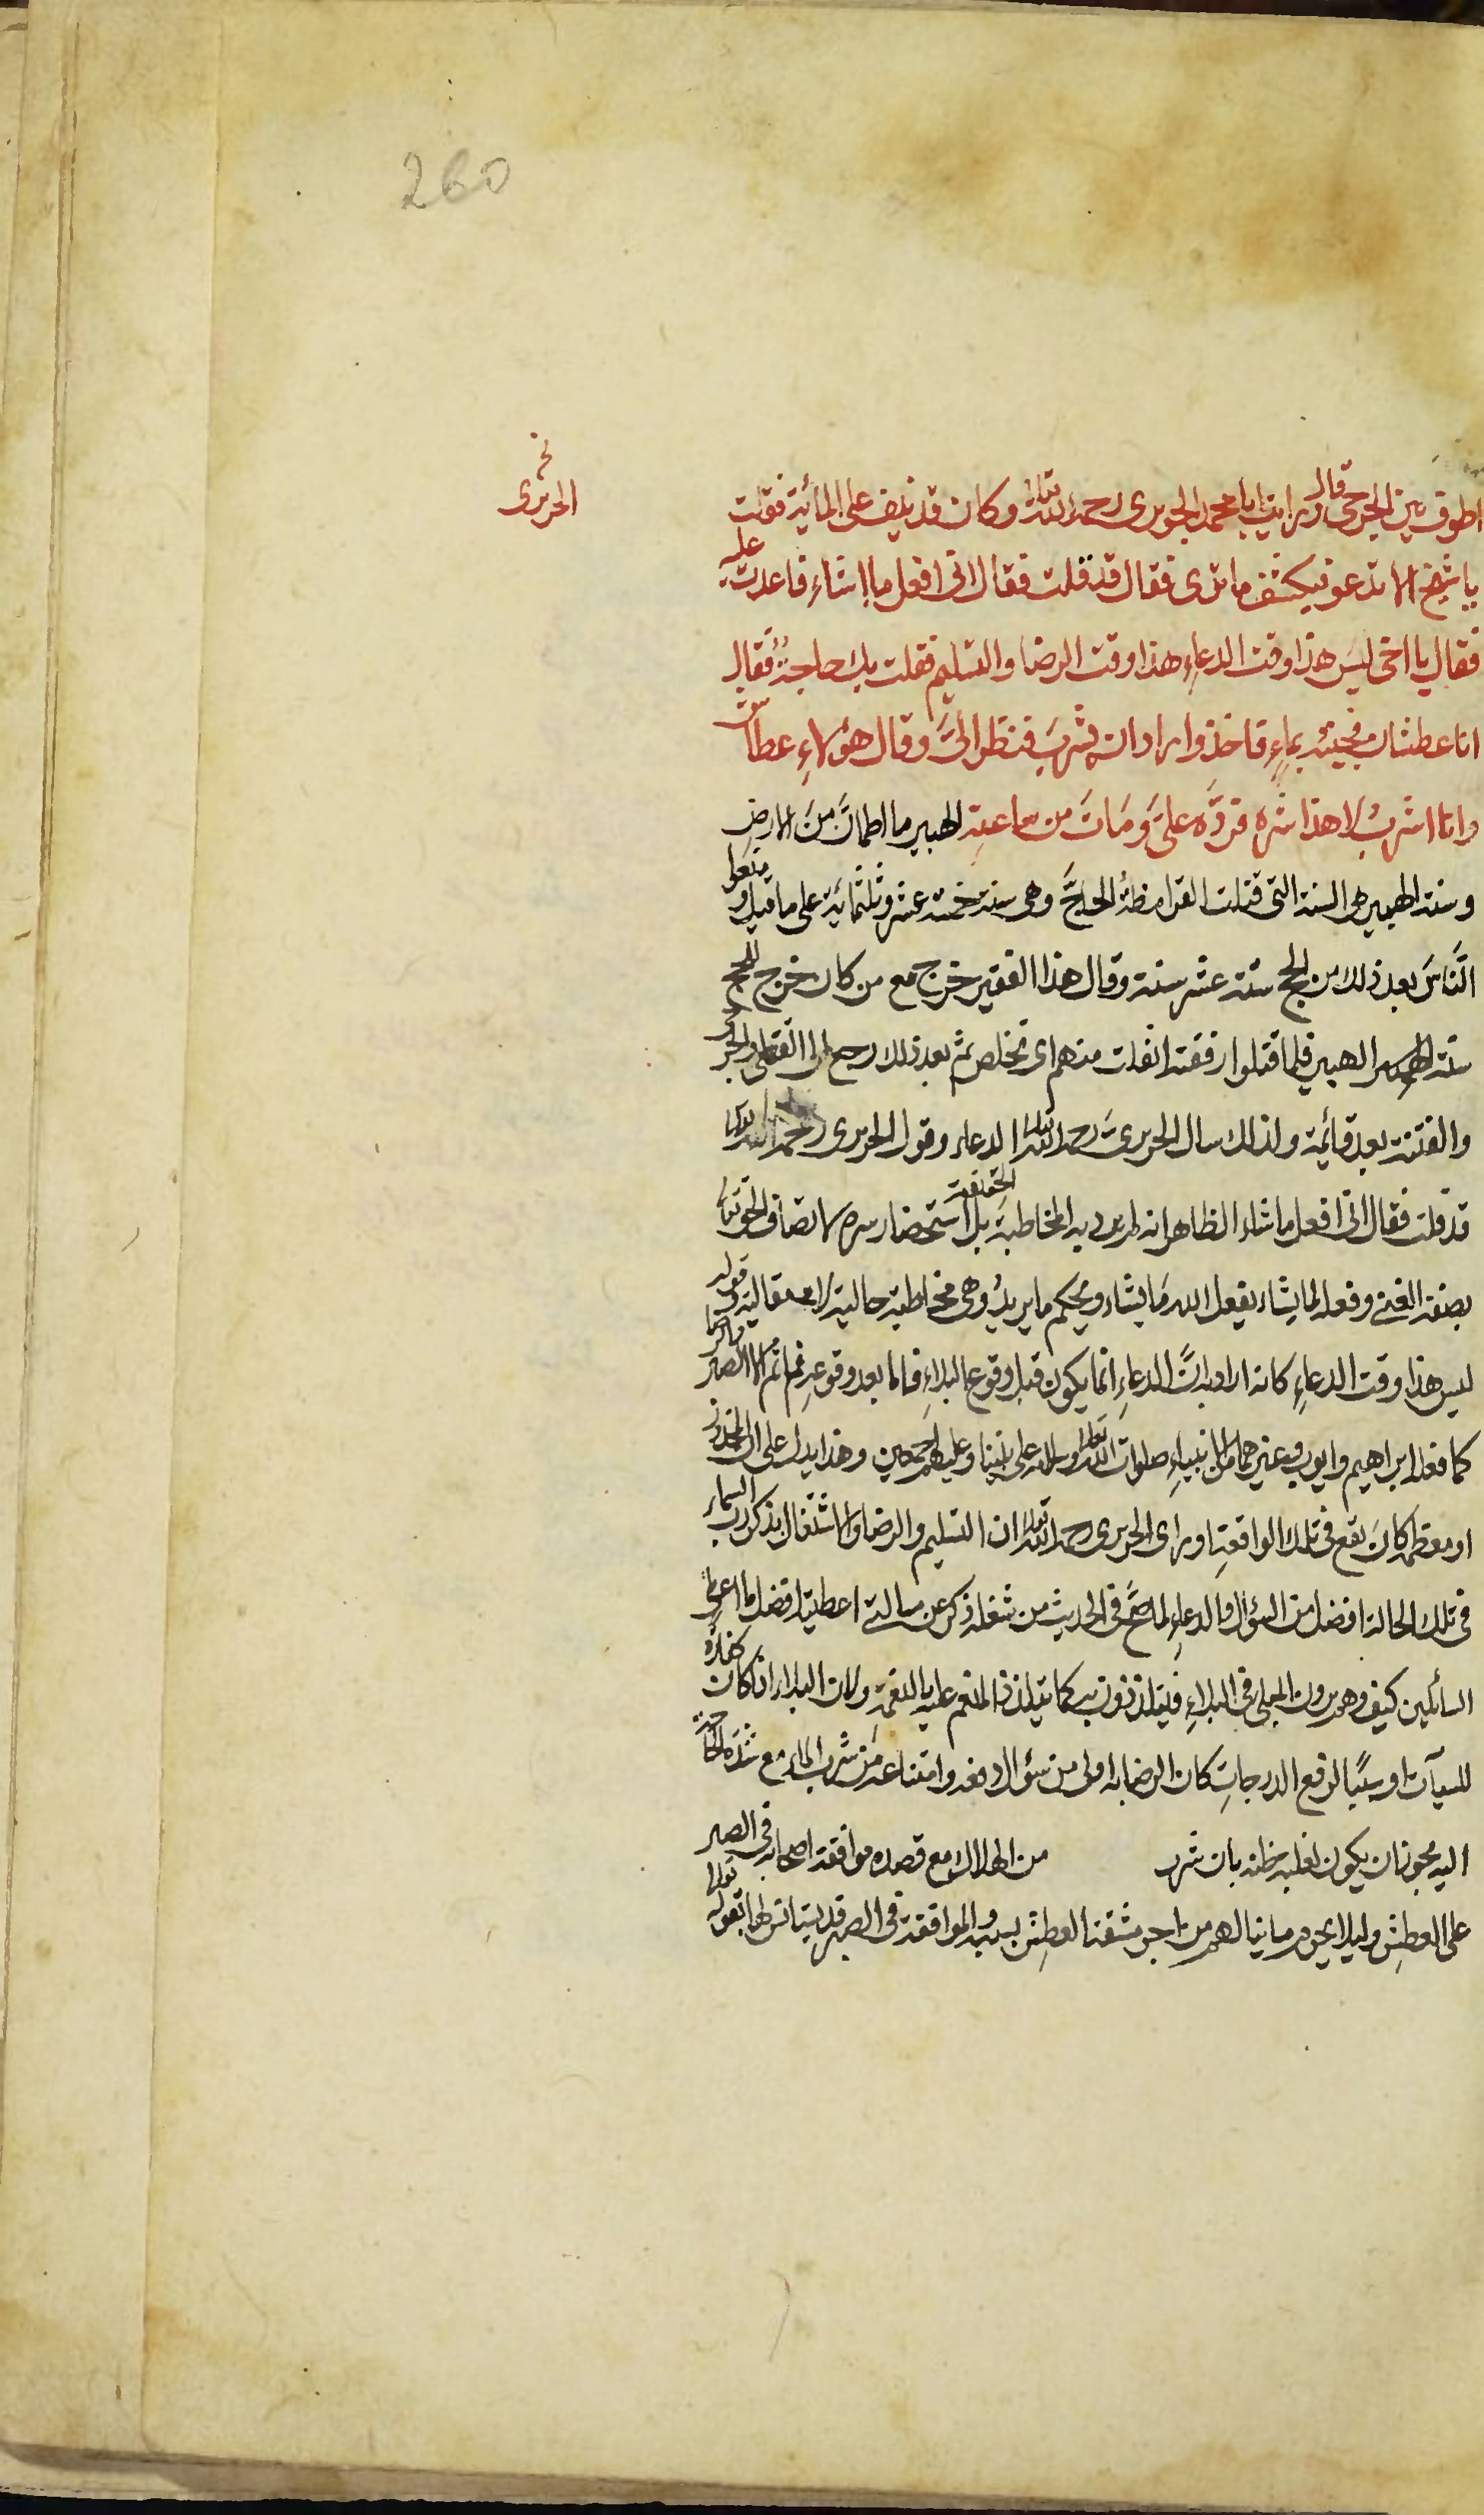 260
نخ
الحريرى
اطوف بين الجرحى قال ورايت ابا محمد الجويرى رحمه الله تعالى وكان قد نيف على المائية فقلت
يا شيخ الا تدعو فيكشف ما ترى فقال قد قلت فقال انى افعل ما اشاء فاعدت عليه
فقال يا اخى ليس هذا وقت الدعاءِ هذا وقت الرضا والتسليم فقلت بك حاجةٌ فقال
انا عطشان فجيته بماءٍ فاخذ واراد ان يشربَ فنظر الىَّ وقال هؤلاءِ عطاش
وانا اشربُ لا هذا شره فردَّه علىَّ ومَاتَ من ساعتِه الهبير ما اطمانَّ مِنَ الارض
وسنة الهبير هى السنة التى قتلت القرامطةُ الحاجَّ وهى سنة خمسة عشر وثلثمائية على ما قيل وتعطل
النَّاسَ بعد ذلك من الحج ستة عشر سنة وقال هذا الفقير خرج مع من كان خرج للحج
سنة الهبير فلما قتلوا رفقته انفلت منهم اى تخلص ثم بعد ذلك رجع الى القتلى والجرحى
والفتنة بعد قائمة ولذلك سال الحريرىَ رحمه الله تعالى الدعاء وقول الحريرى رحمه الله تعالى
قد قلت فقال انى افعل ما شاء الظاهر انه لم يرد به المخاطبة الحقيقة بل استحضار سره لاتصاف الحق تعالى
بصفة الغنى وفعله لما يشاء يفعل الله مَا يشاء ويحكم ما يريدُ وهى مخاطبة حالية لا مقالية وقوله
ليس هذا وقت الدعاءِ كانه اراد به انَّ الدعاءِ انما يكون قبل وقوع البلاءِ فاما بعد وقوعهِ فما ثم الا الصبر والرضا
كما فعله ابراهيم وايوب وغيرهما من الانبياءِ صلوات الله تعالى وسلامه على نبينا وعليهم اجمعين وهذا يدل على ان المحذور
او معظمه كانَ يقع فى تلك الواقعةِ وراى الحريرى رحمه الله تعالى ان التسليم والرضا والاشتغال بذكر رب السماء
فى تلك الحالة افضل من السؤال والدعاءِ لما صحَّ فى الحديث من شغله ذكرى عن مسالتى اعطيته افضل ما اعطى
السائلين كيف وهم يرون المبلى فى البلاءِ فيتلذذون به كما يتلذذ المنعم عليه بالنعمةِ ولان البلاء اذا كان كفارة
للسيآت او سببًا لرفع الدرجاتِ كان الرضا به اولى من سؤال دفعه وامتناعه مِن شرب الماء مع شدة الحاجة
اليه يجوز ان يكون لغلبة ظنه بان شرب من الهلاك مع قصده موافقة اصحابه فى الصبر
على العطشِ وليلا يحرم ما ينالهم من اجر مشقة العطشِ بسببه والموافقة فى الصبر قد يستانس لها بقوله تعالى